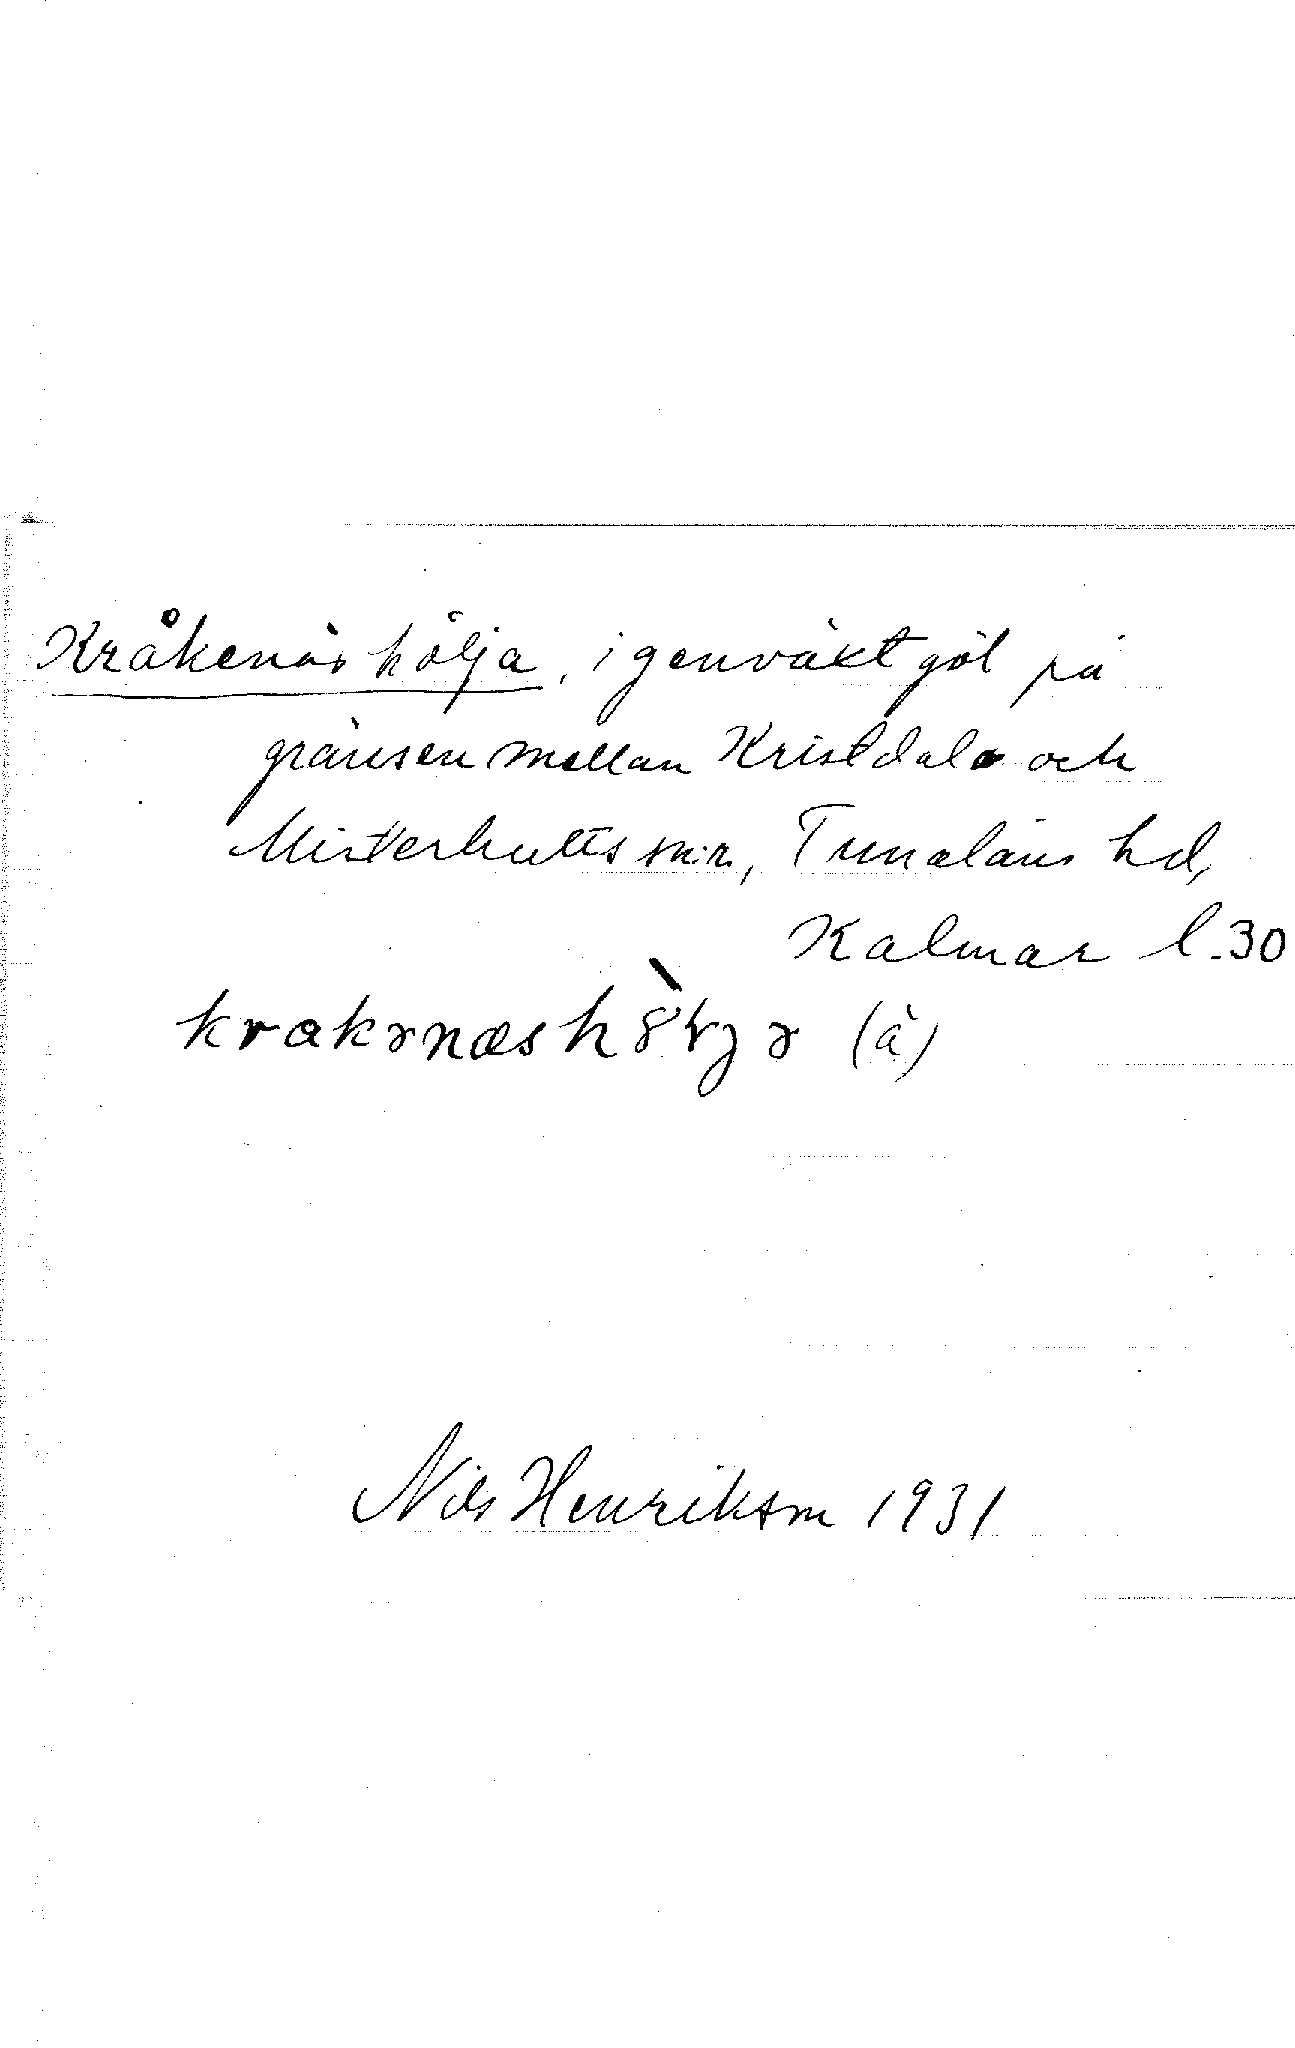 Kråkenäs hölja, igenväxt göl på
gränsen mellan Kristdala och
Misterhults sn:r, Tunaläns hd,
Kalmar l. 30
(å)
Nils Henrikson 1931